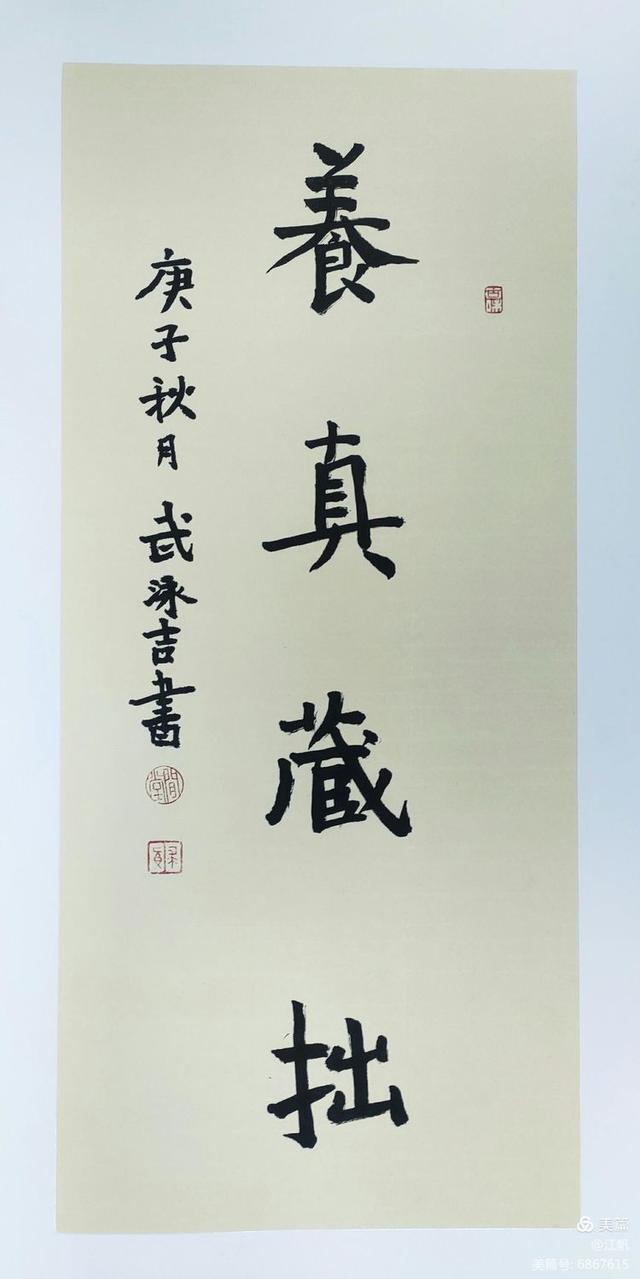 養真藏拙
庚子秋月 武泳吉書
美篇
@江帆
美篇号: 6867615